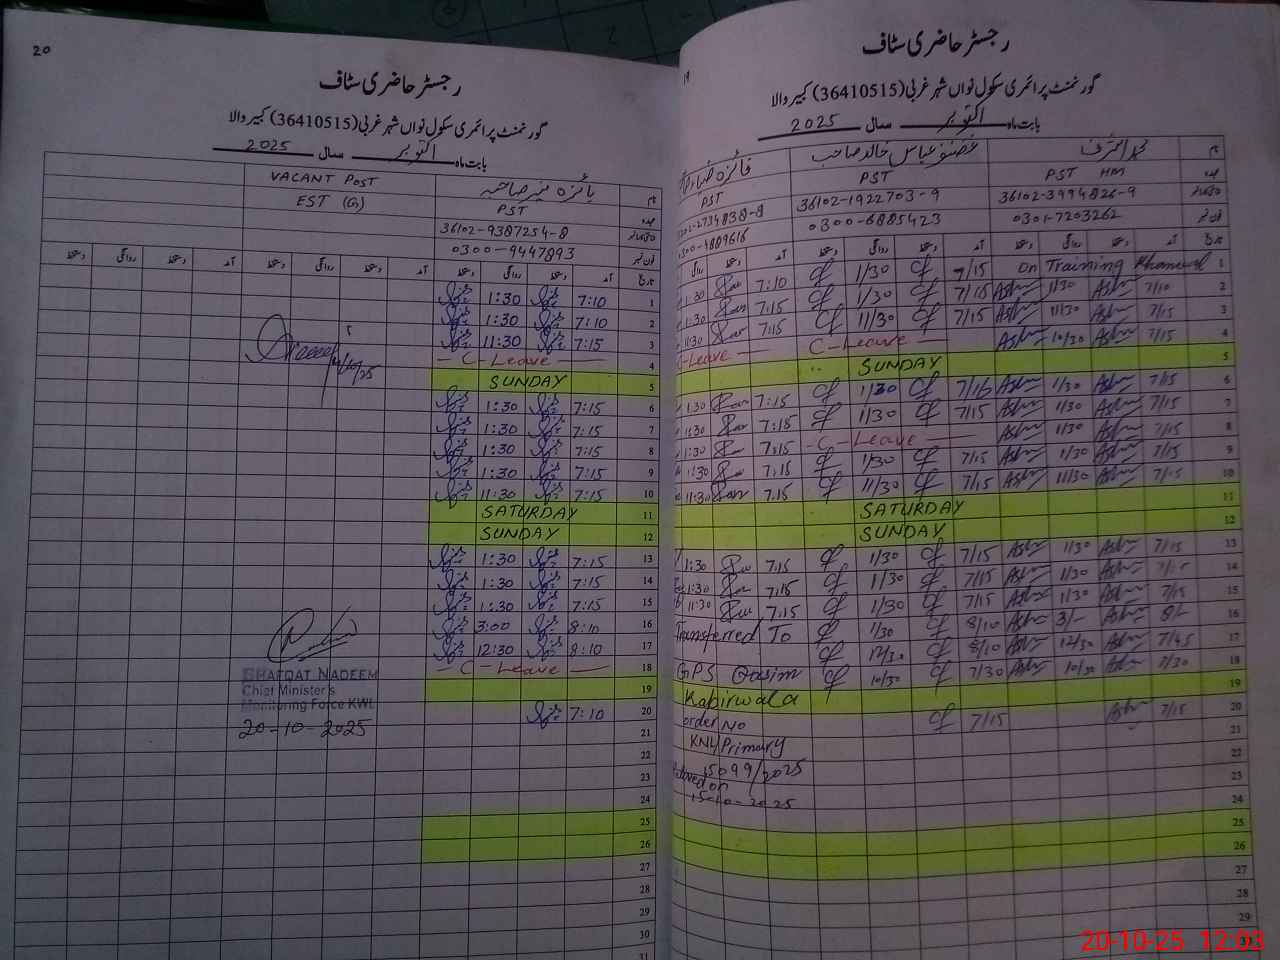 20
رجسٹر حاضری سٹاف
گورنمنٹ پرائمری سکول نواں شہر غربی (36410515) کبیر والا
بابت ماہ اکتوبر سال 2025
نام
VACANT POST
عہدہ PST
EST (G)
36102-9387254-8
فون نمبر 0300-9447893
تاریخ آمد دستخط روانگی دستخط آمد دستخط روانگی دستخط آمد دستخط روانگی دستخط
1 7:10 1:30
2 7:10 1:30
3 7:15 11:30
4 - C-Leave -
5 SUNDAY
6 7:15 1:30
7 7:15 1:30
8 7:15 1:30
9 7:15 1:30
10 7:15 11:30
11 SATURDAY
12 SUNDAY
13 7:15 1:30
14 7:15 1:30
15 7:15 1:30
16 8:10 3:00
17 8:10 12:30
18 - C-Leave -
19
20 7:10
21
22
23
24
25
26
27
28
29
30
SHAFQAT NADEEM
Chief Minister's
Monitoring Force KWL
20-10-2025
19
رجسٹر حاضری سٹاف
گورنمنٹ پرائمری سکول نواں شہر غربی (36410515) کبیر والا
بابت ماہ اکتوبر سال 2025
نام محمد اشرف عباس خالد صاحب فائزہ
عہدہ PST HM PST PST
36102-3994826-9 36102-1922703-9
فون نمبر 0301-7203262 0300-6885423
تاریخ آمد دستخط روانگی دستخط آمد دستخط روانگی دستخط آمد دستخط روانگی
1 On Training Khanewal 7/15 1/30 7:10 1:30
2 7/10 1/30 7/15 1/30 7:15 1:30
3 7/15 11/30 7/15 11/30 7:15 11:30
4 7/15 10/30 C-Leave C-Leave
5 SUNDAY
6 7/15 1/30 7/16 1/30 7:15 1:30
7 7/15 1/30 7/15 1/30 7:15 1:30
8 7/15 1/30 -C-Leave- 7:15 1:30
9 7/15 1/30 7/15 1/30 7:15 1:30
10 7/15 11/30 7/15 11/30 7.15 11:30
11 SATURDAY
12 SUNDAY
13 7/15 1/30 7/15 1/30 7:15 1:30
14 7/15 1/30 7/15 1/30 7:15 1:30
15 7/15 1/30 7/15 1/30 7:15 11:30
16 8/- 3/- 8/10 1/30 Transferred To
17 7/45 12/30 8/10 12/30
18 7/30 10/30 7/30 10/30 GPS Qasim
19 Kabirwala
20 7/15 7/15 order No
21 KNW/Primary
22 15099/2025
23 Relieved on
24 15-10-2025
25
26
27
28
29
20-10-25 12:03